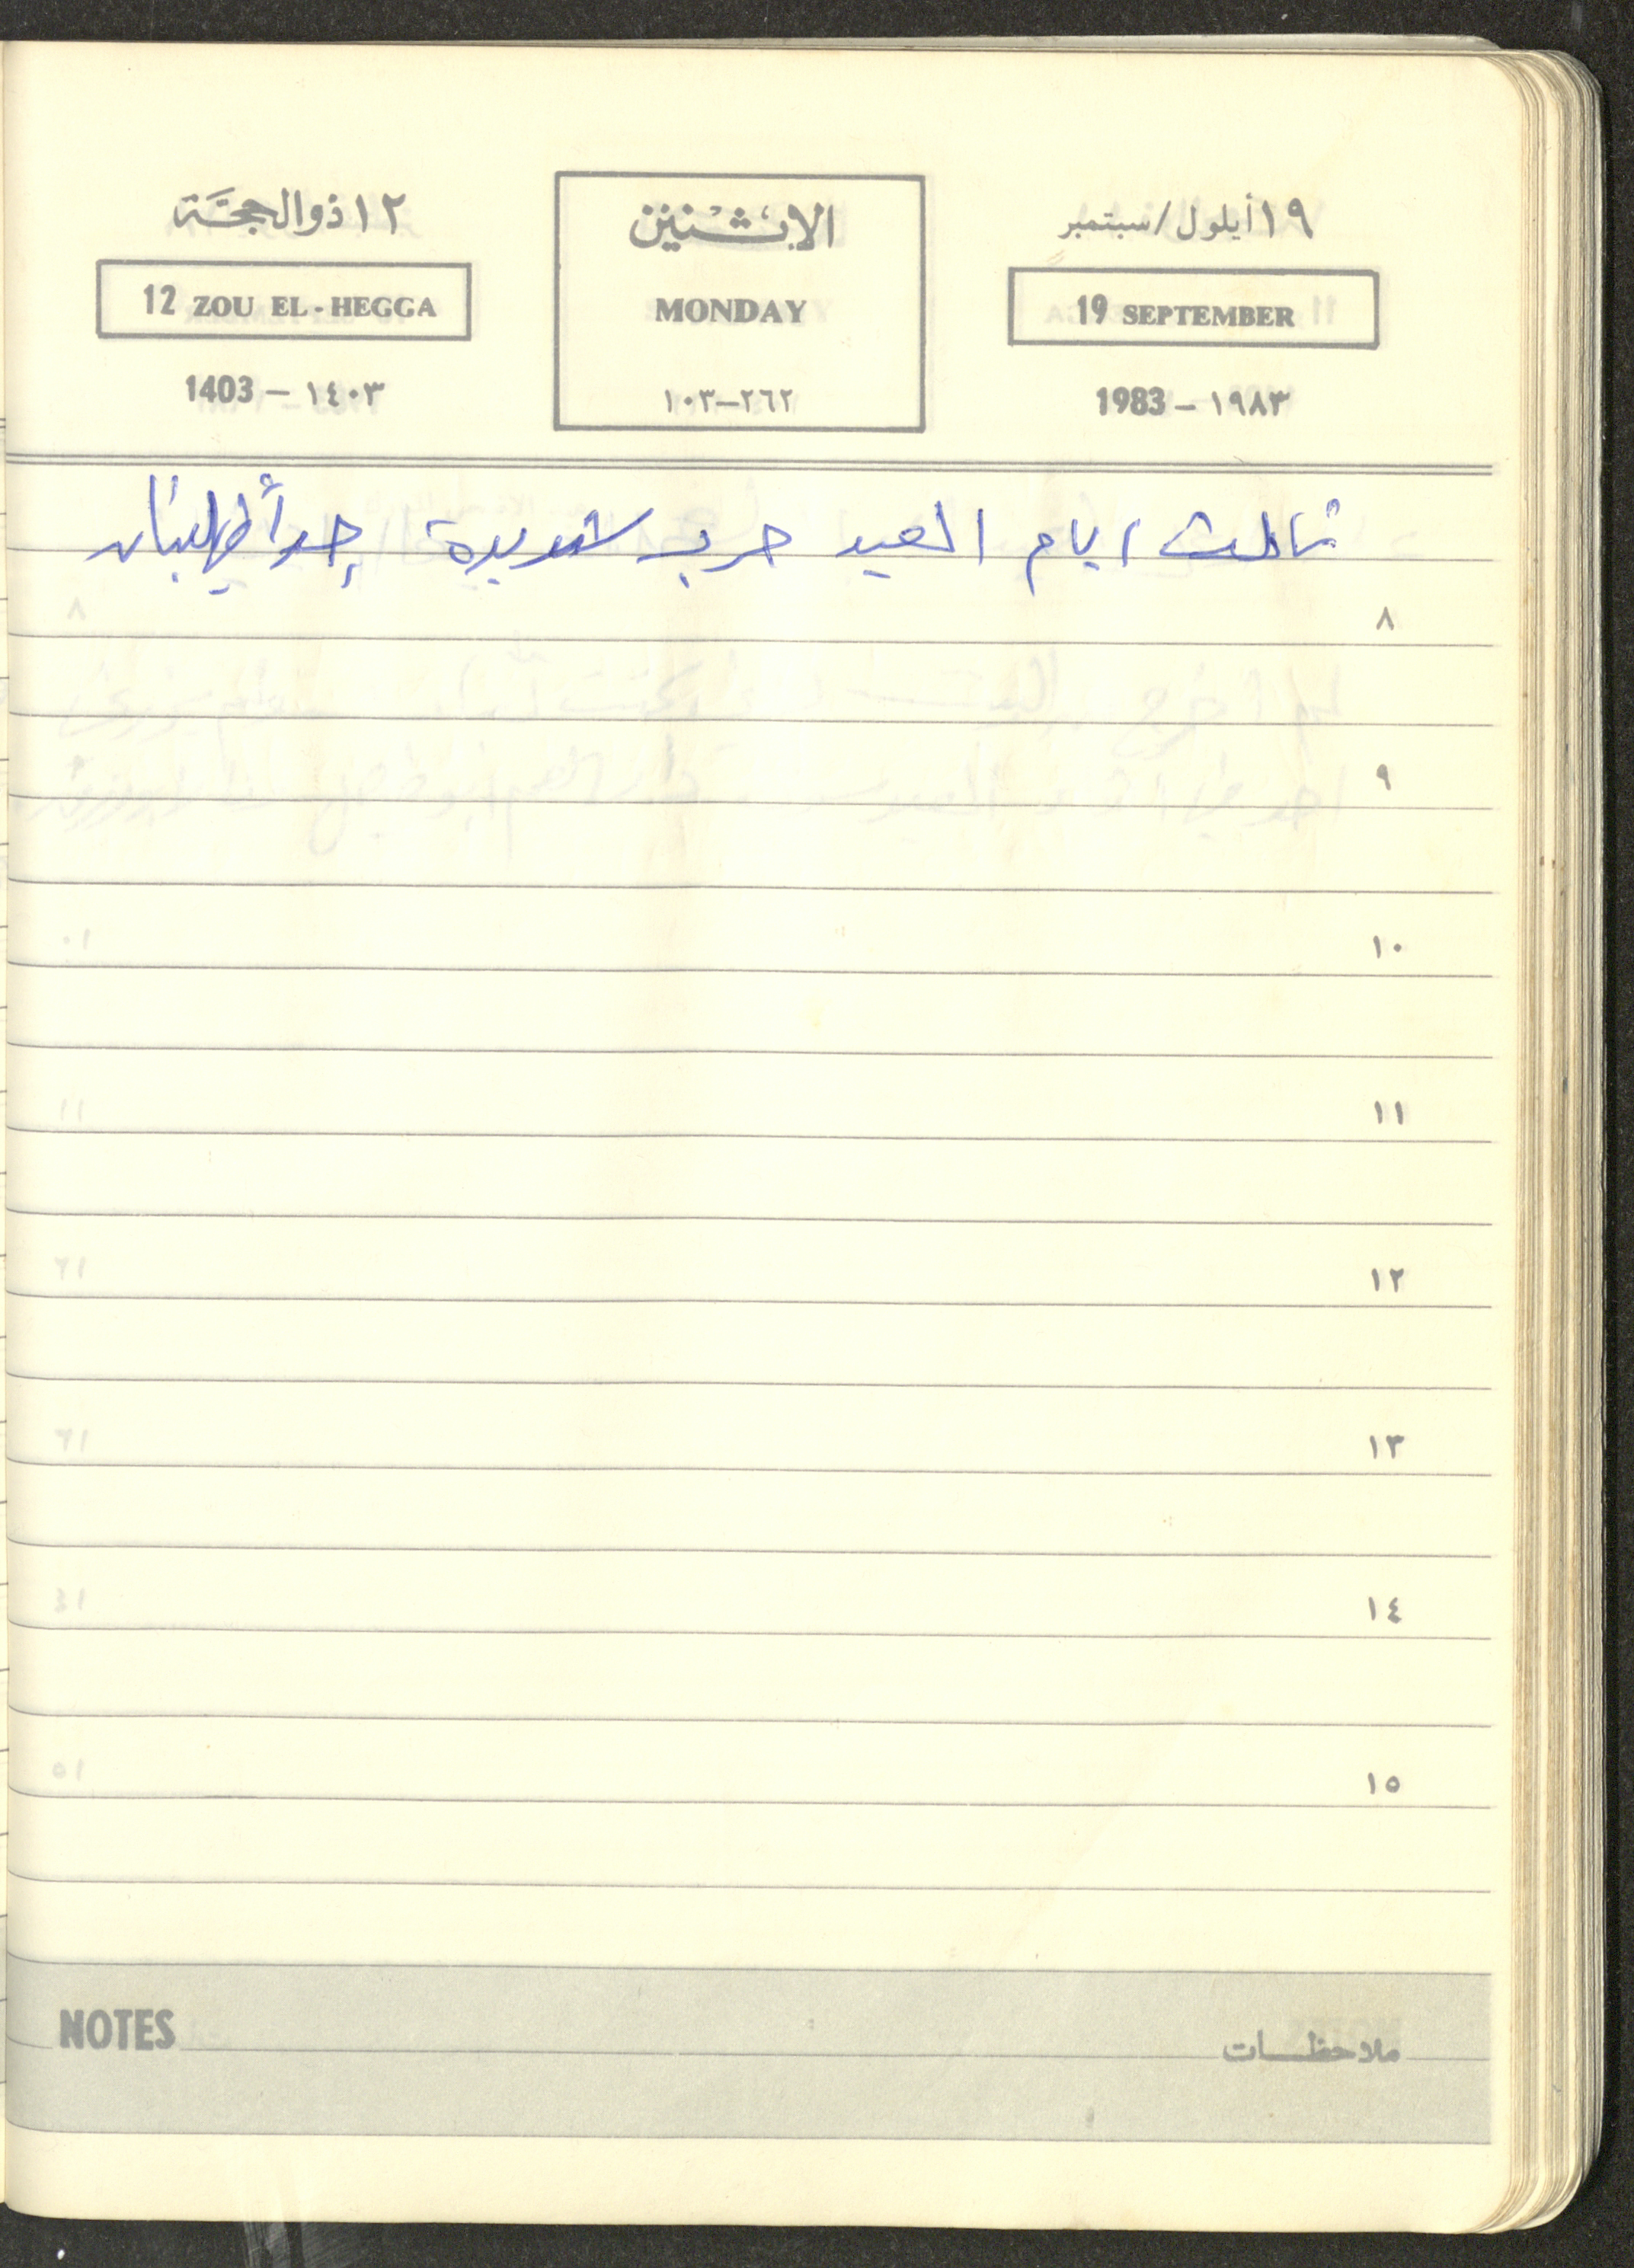 ١٩ أيلول/سبتمبر
19 SEPTEMBER
1983 – ١٩٨٣
الاثنين
MONDAY
٢٦٢–١٠٣
١٢ ذو الحجة
12 ZOU EL-HEGGA
1403 – ١٤٠٣
ثالث ايام العيد حرب شديدة جداً في لبنان
٨
٩
١٠
١١
١٢
١٣
١٤
١٥
ملاحظات
NOTES